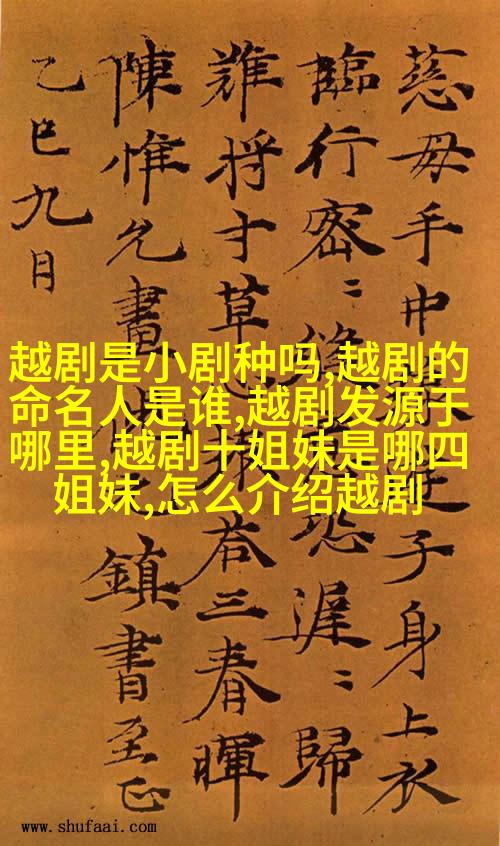 慈母手中遊子身上衣
臨行密ミ縫恐遲ミ歸
難將寸草荅三春暉
陳惟允畫鎮書至正
乙巳九月
越剧是小剧种吗,越剧的
命名人是谁,越剧发源于
哪里,越剧十姐妹是哪四
姐妹,怎么介绍越剧
www.shufaai.com